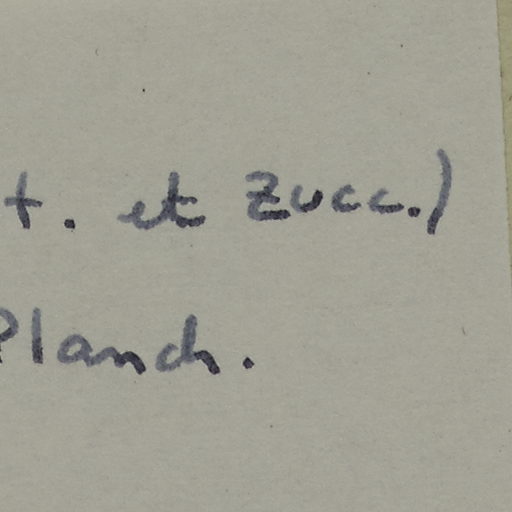 t. et Zucc.)
Planch.